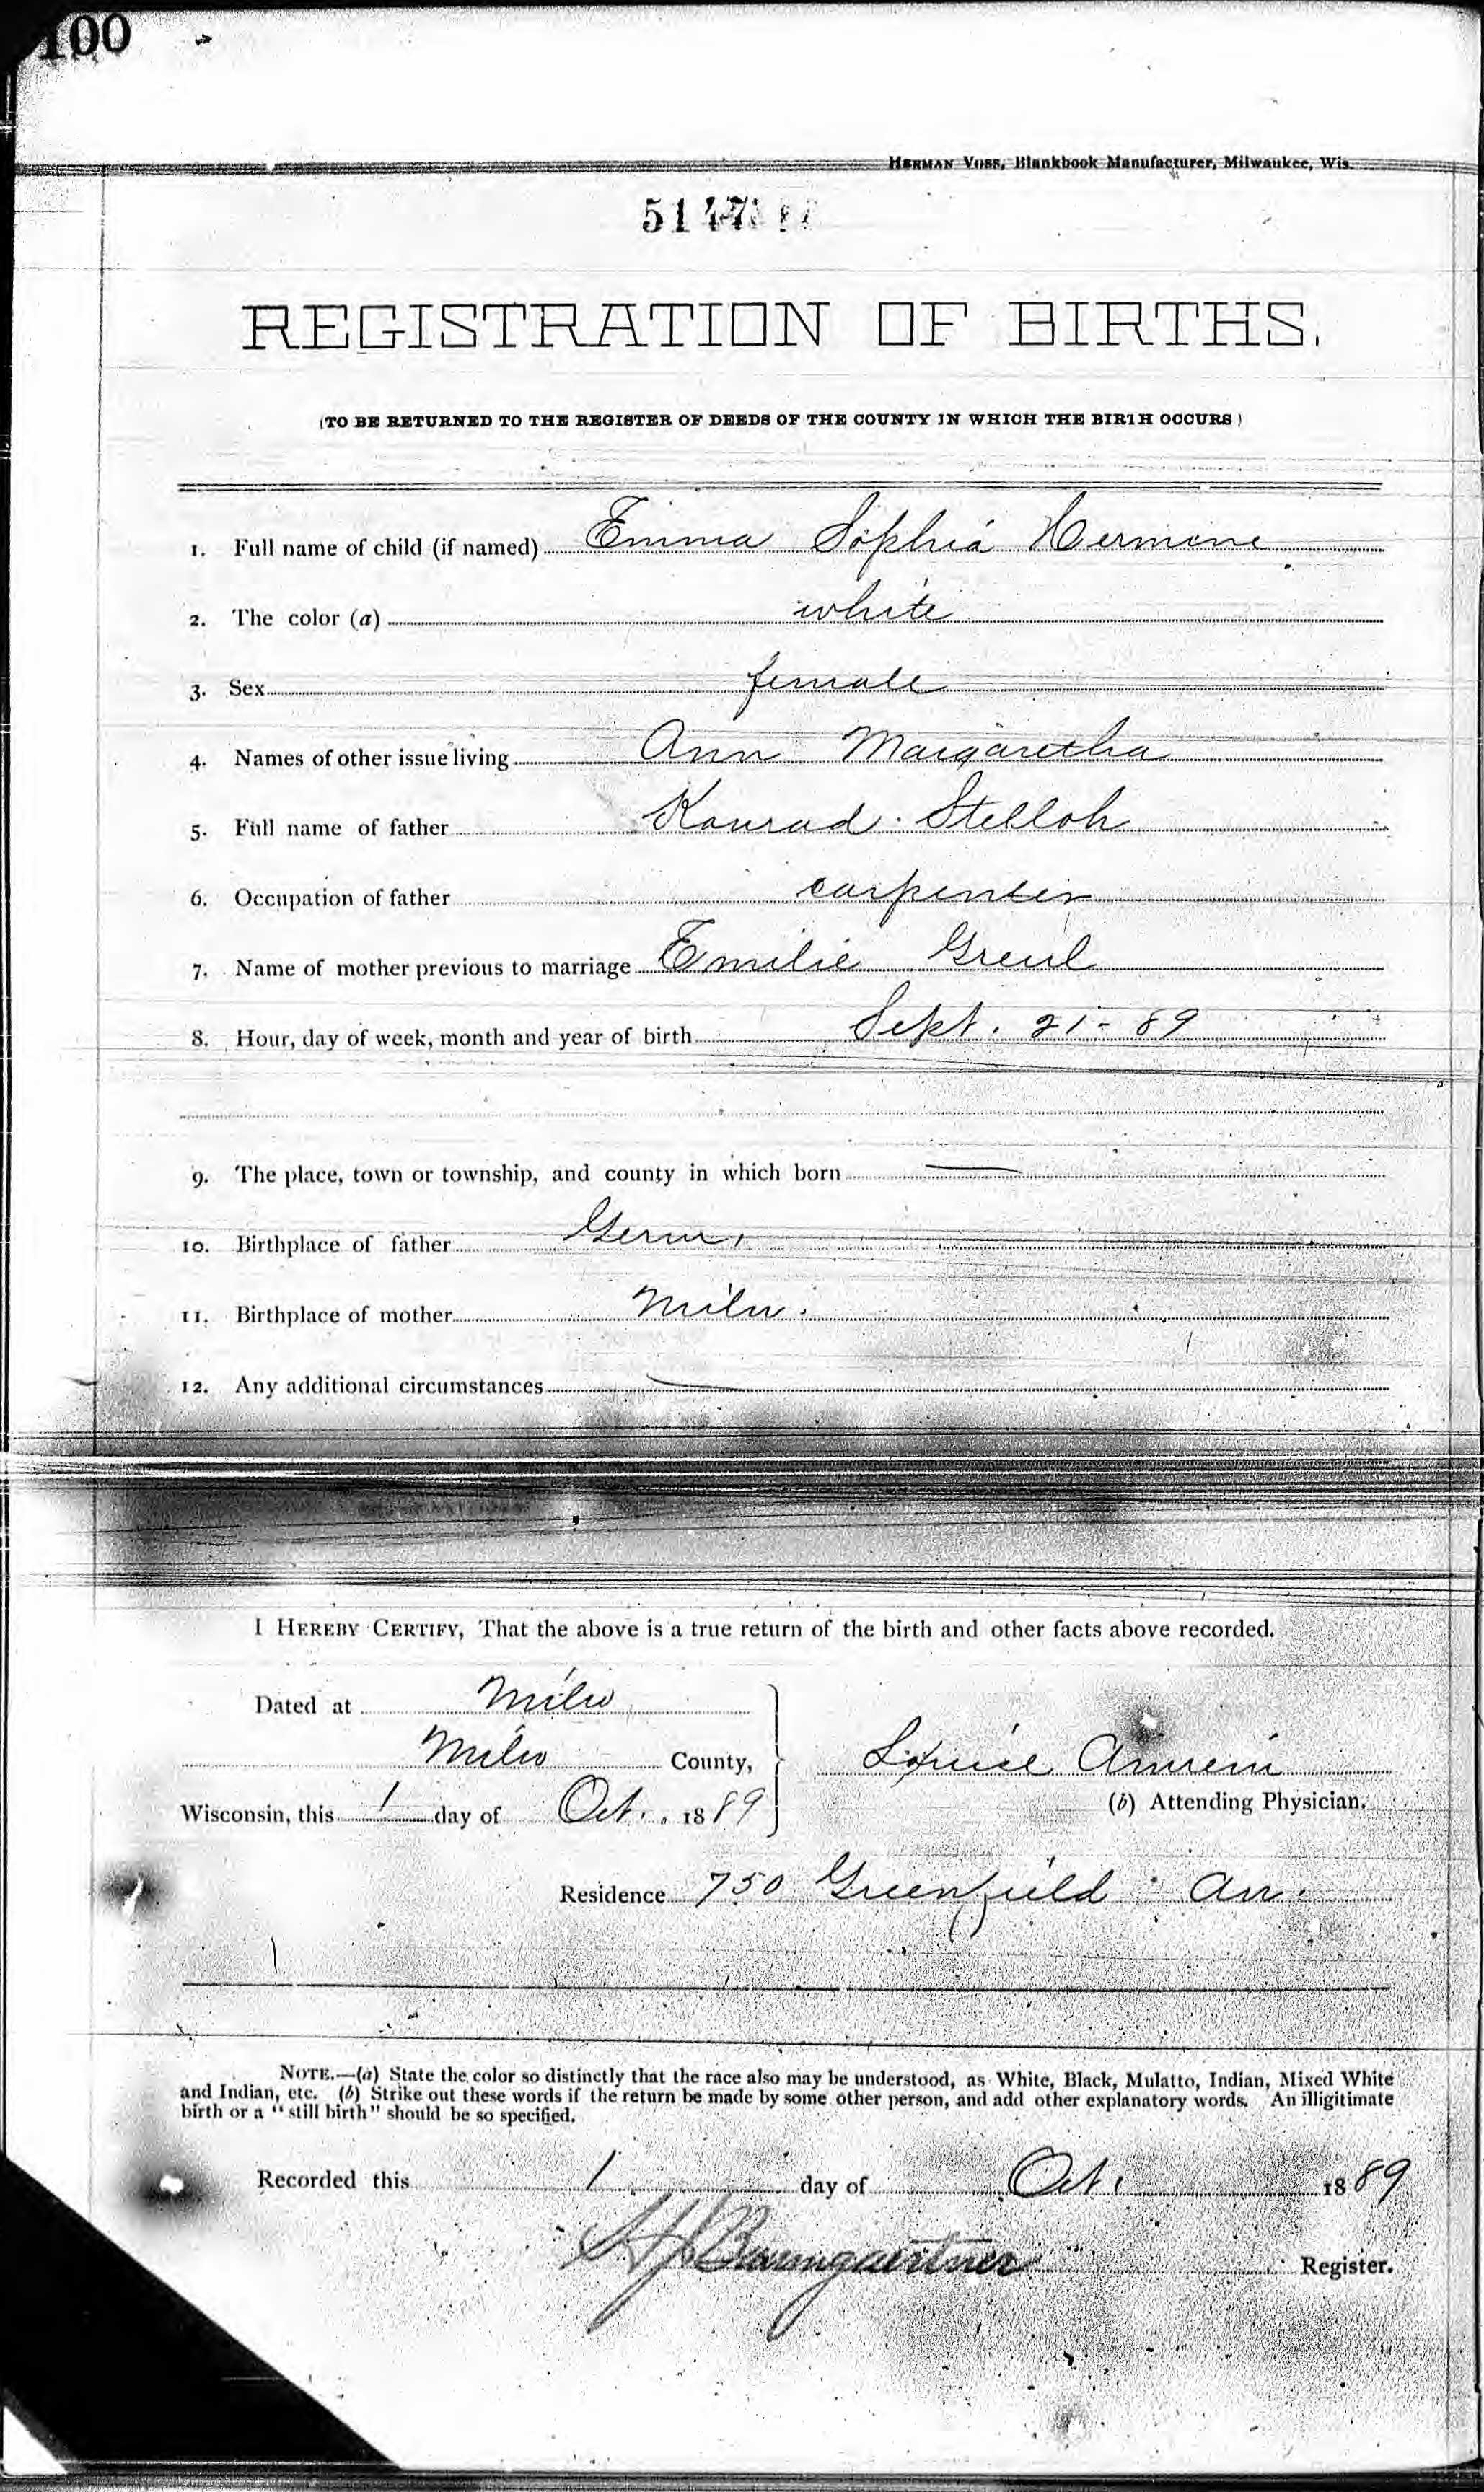 100
HERMAN VOSS, Blankbook Manufacturer, Milwaukee, Wis.
REGISTRATION OF BIRTHS.
(TO BE RETURNED TO THE REGISTER OF DEEDS OF THE COUNTY IN WHICH THE BIRTH OCCURS)
1. Full name of child (if named) Emma Sophia Hermine
2. The color (a) white
3. Sex female
4. Names of other issue living Ann Margaretha
5. Full name of father Konrad Stelloh
6. Occupation of father carpenter
7. Name of mother previous to marriage Emilie Greul
8. Hour, day of week, month and year of birth Sept. 21 - 89
9. The place, town or township, and county in which born —
10. Birthplace of father Germ.
11. Birthplace of mother Milw.
12. Any additional circumstances —
I HEREBY CERTIFY, That the above is a true return of the birth and other facts above recorded.
Dated at Milw
Milw County,
Louise Amrein
(b) Attending Physician.
Wisconsin, this 1 day of Oct. 1889
Residence 750 Greenfield Av.
NOTE.—(a) State the color so distinctly that the race also may be understood, as White, Black, Mulatto, Indian, Mixed White
and Indian, etc. (b) Strike out these words if the return be made by some other person, and add other explanatory words. An illigitimate
birth or a "still birth" should be so specified.
Recorded this 1 day of Oct. 1889
Baumgaertner Register.